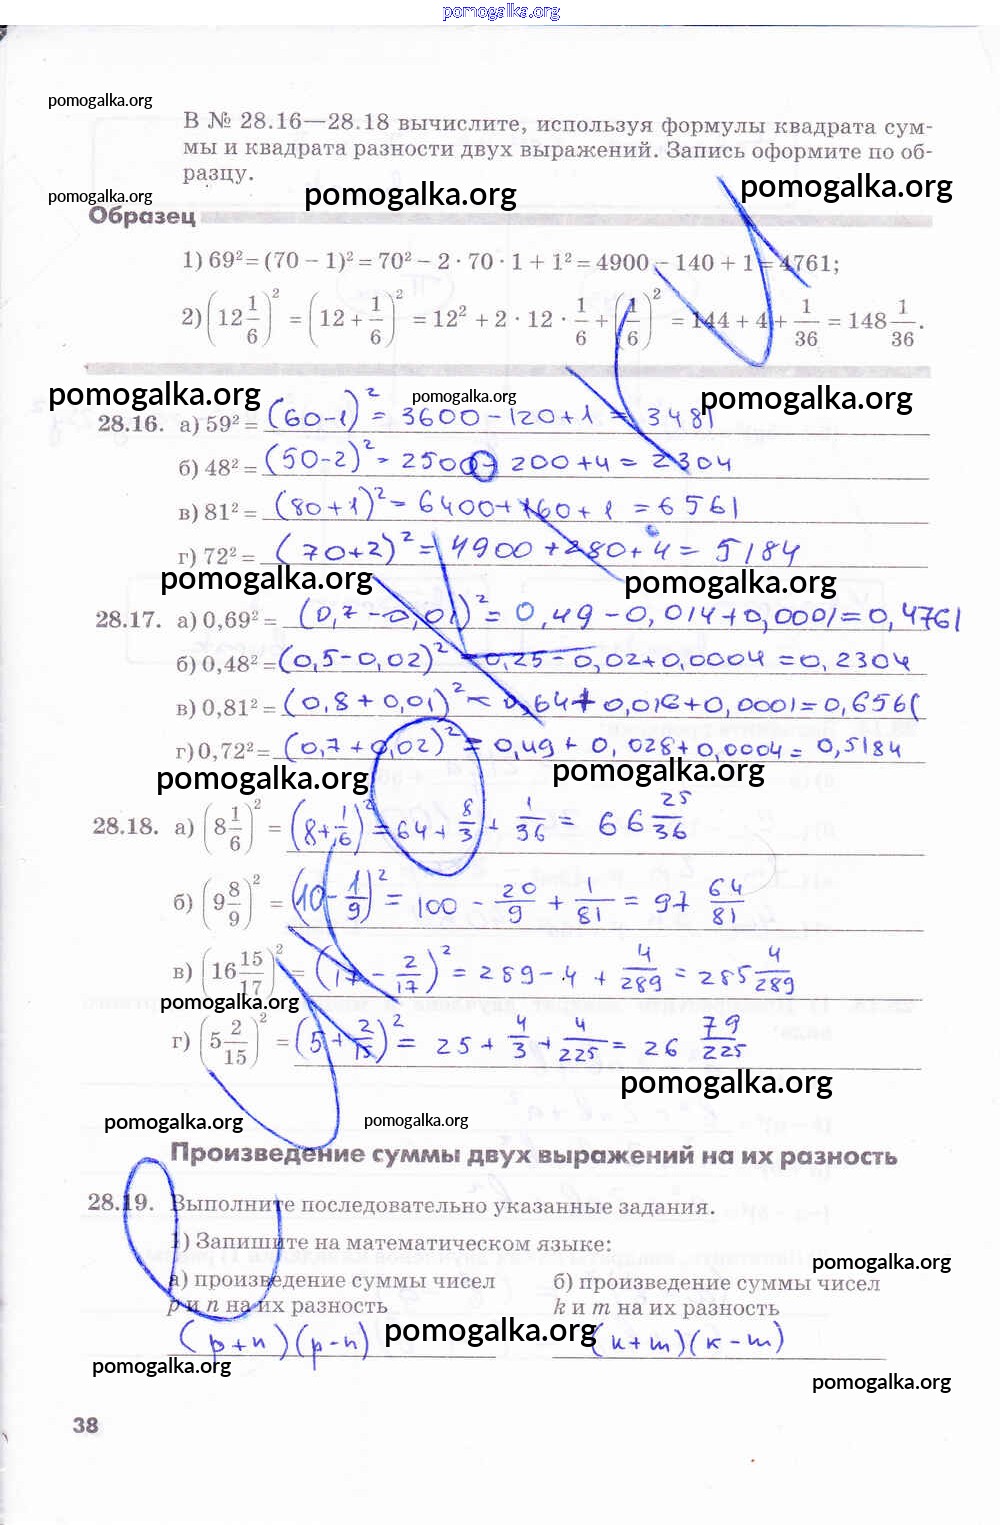 pomogalka.org
pomogalka.org
В № 28.16—28.18 вычислите, используя формулы квадрата сум-
мы и квадрата разности двух выражений. Запись оформите по об-
разцу.
pomogalka.org pomogalka.org pomogalka.org
Образец
1) 69² = (70 − 1)² = 70² − 2 · 70 · 1 + 1² = 4900 − 140 + 1 = 4761;
2) (12 1/6)² = (12 + 1/6)² = 12² + 2 · 12 · 1/6 + (1/6)² = 144 + 4 + 1/36 = 148 1/36.
pomogalka.org pomogalka.org pomogalka.org
28.16. а) 59² = (60-1)² = 3600 - 120 + 1 = 3481
б) 48² = (50-2)² = 2500 - 200 + 4 = 2304
в) 81² = (80+1)² = 6400 + 160 + 1 = 6561
г) 72² = (70+2)² = 4900 + 280 + 4 = 5184
pomogalka.org pomogalka.org
28.17. а) 0,69² = (0,7 - 0,01)² = 0,49 - 0,014 + 0,0001 = 0,4761
б) 0,48² = (0,5 - 0,02)² = 0,25 - 0,02 + 0,0004 = 0,2304
в) 0,81² = (0,8 + 0,01)² = 0,64 + 0,016 + 0,0001 = 0,6561
г) 0,72² = (0,7 + 0,02)² = 0,49 + 0,028 + 0,0004 = 0,5184
pomogalka.org pomogalka.org
28.18. а) (8 1/6)² = (8 + 1/6)² = 64 + 8/3 + 1/36 = 66 25/36
б) (9 8/9)² = (10 - 1/9)² = 100 - 20/9 + 1/81 = 97 64/81
в) (16 15/17)² = (17 - 2/17)² = 289 - 4 + 4/289 = 285 4/289
pomogalka.org
г) (5 2/15)² = (5 + 2/15)² = 25 + 4/3 + 4/225 = 26 79/225
pomogalka.org
pomogalka.org pomogalka.org
Произведение суммы двух выражений на их разность
28.19. Выполните последовательно указанные задания.
1) Запишите на математическом языке:
pomogalka.org
а) произведение суммы чисел
p и n на их разность
(p+n)(p-n)
б) произведение суммы чисел
k и m на их разность
(k+m)(k-m)
pomogalka.org
pomogalka.org
pomogalka.org
38